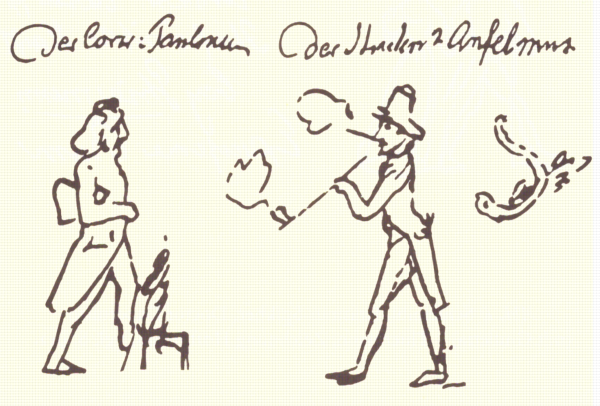 Der Conr: Paulmann der Student Anselmus